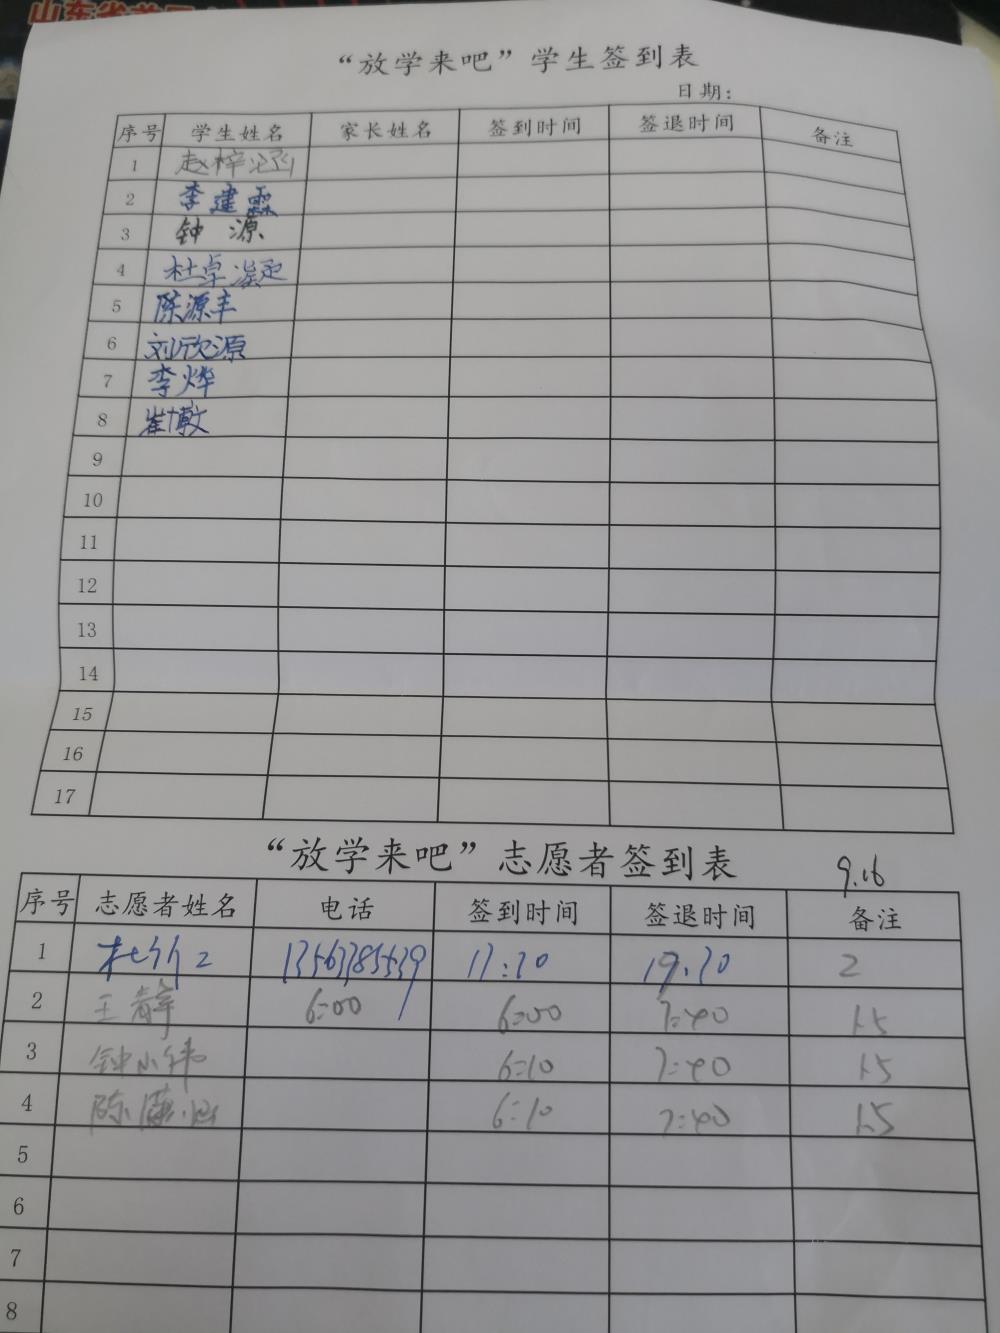 山东省
“放学来吧”学生签到表
日期：
序号 学生姓名 家长姓名 签到时间 签退时间 备注
1 赵梓涵
2 李建霖
3 钟源
4 杜卓凝
5 陈源丰
6 刘欣源
7 李烨
8 崔敏
9
10
11
12
13
14
15
16
17
“放学来吧”志愿者签到表 9.16
序号 志愿者姓名 电话 签到时间 签退时间 备注
1 17:30 19:30 2
2 王静 6:00 6:00 7:40 1.5
3 钟小伟 6:10 7:40 1.5
4 陈 6:10 7:40 1.5
5
6
7
8